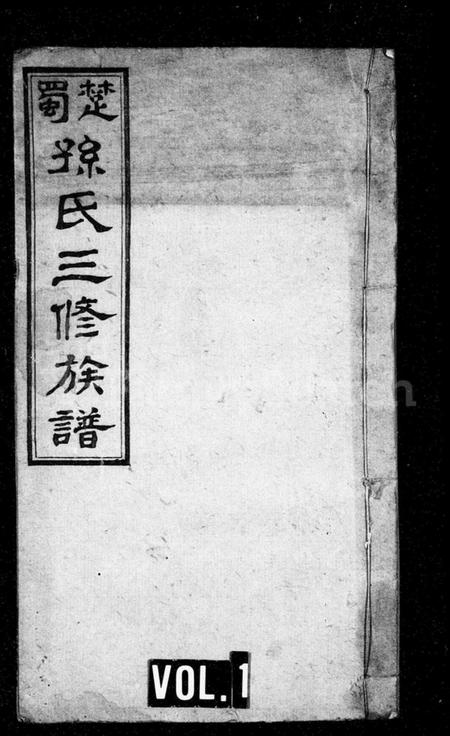 楚蜀
孫氏三修族譜
VOL. 1